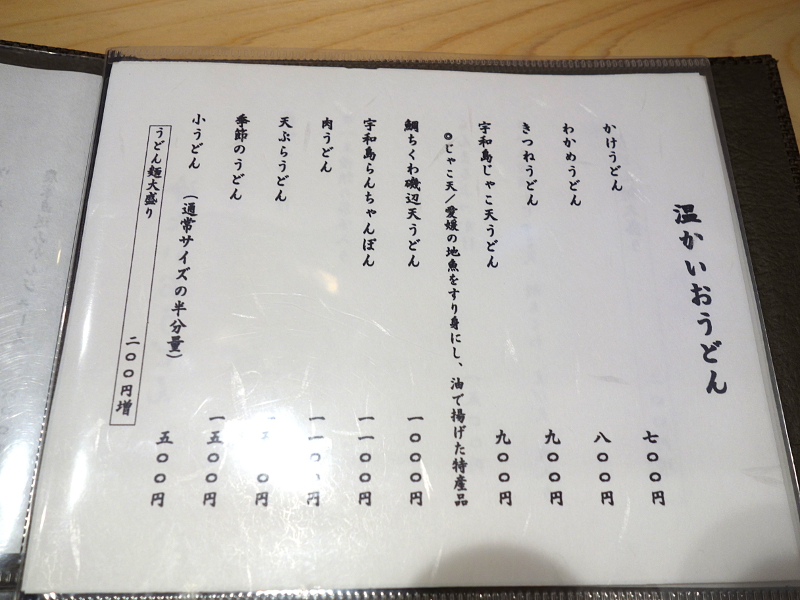 温かいおうどん
かけうどん 七〇〇円
わかめうどん 八〇〇円
きつねうどん 九〇〇円
宇和島じゃこ天うどん 九〇〇円
◎じゃこ天／愛媛の地魚をすり身にし、油で揚げた特産品
鯛ちくわ磯辺天うどん 一〇〇〇円
宇和島らんちゃんぽん 一一〇〇円
肉うどん 一一〇〇円
天ぷらうどん
季節のうどん 一五〇〇円
小うどん （通常サイズの半分量） 五〇〇円
うどん麺大盛り 二〇〇円増